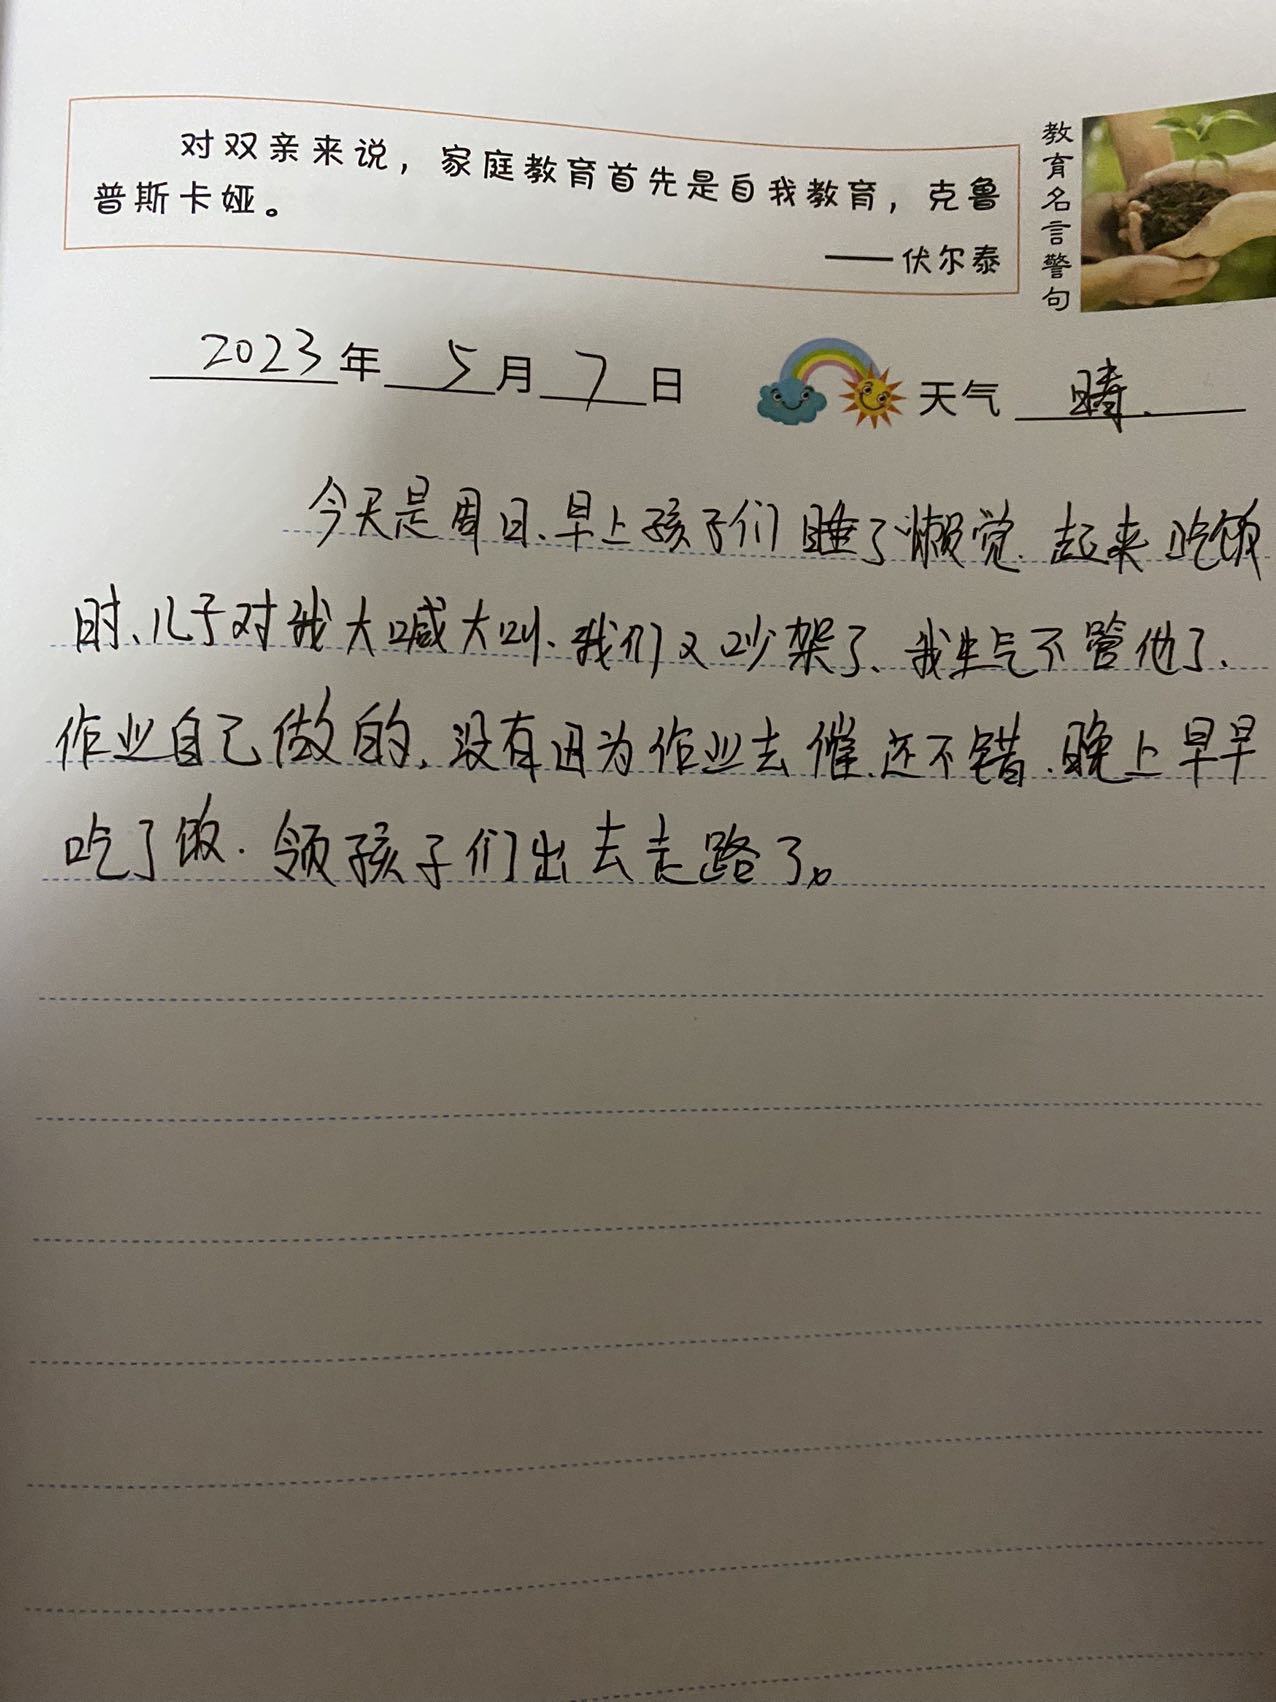 对双亲来说，家庭教育首先是自我教育，克鲁
普斯卡娅。
——伏尔泰
教育名言警句
2023年 5月 7日 天气 晴.
今天是周日、早上孩子们睡了懒觉. 起来吃饭
时、儿子对我大喊大叫、我们又吵架了、我生气不管他了.
作业自己做的, 没有因为作业去催.还不错.晚上早早
吃了饭. 领孩子们出去走路了。